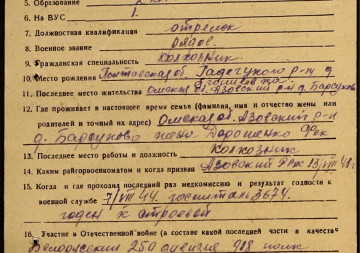 5. Образование
6. На ВУС 1.
7. Должностная квалификация стрелок
8. Военное звание рядов.
9. Гражданская специальность колхозник
10. Место рождения Полтавская обл. Гадячского р-н д.
11. Последнее место жительства Омская обл. Азовский р-н д. Барсуково
12. Где проживает в настоящее время семья (фамилия, имя и отчество жены или
родителей и точный их адрес) Омская об. Азовский р-н
д. Барсуково жена Дорошенко
13. Последнее место работы и должность колхозник
14. Каким райгорвоенкоматом и когда призван Азовский РВК 13/VIII 41 г.
15. Когда и где проходил последний раз медкомиссию и результат годности к
военной службе 7/VIII 44. госпиталь 3674.
годен к строевой
16. Участие в Отечественной войне (в составе какой последней части в качестве
Белорусский 250 дивизия 918 полк